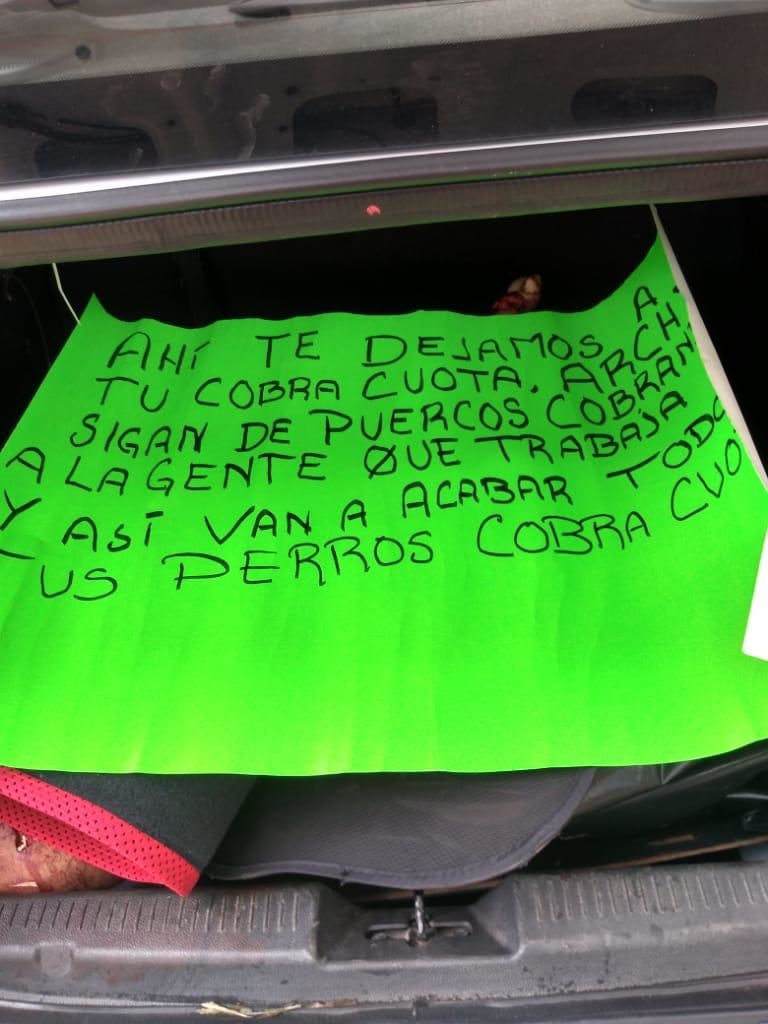 AHÍ TE DEJAMOS A
TU COBRA CUOTA. ARCH
SIGAN DE PUERCOS COBRAN
A LA GENTE QUE TRABAJA
Y ASÍ VAN A ACABAR TODO
US PERROS COBRA CUO